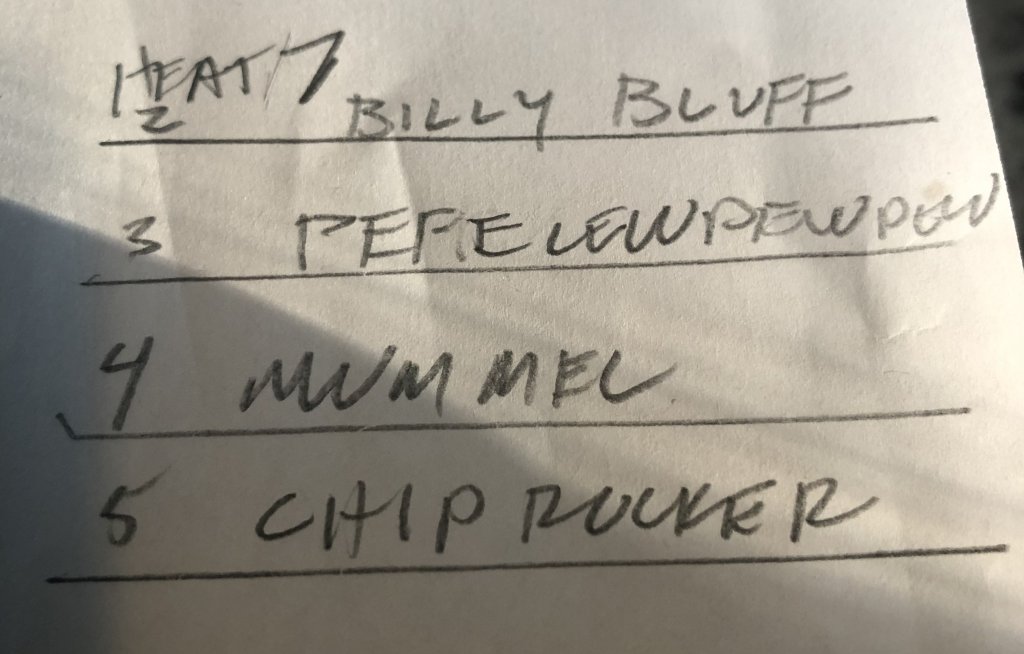 HEAT 7
2 BILLY BLUFF
3 PEPE LEW PEW PEW
4 MUMMEL
5 CHIP ROCKER